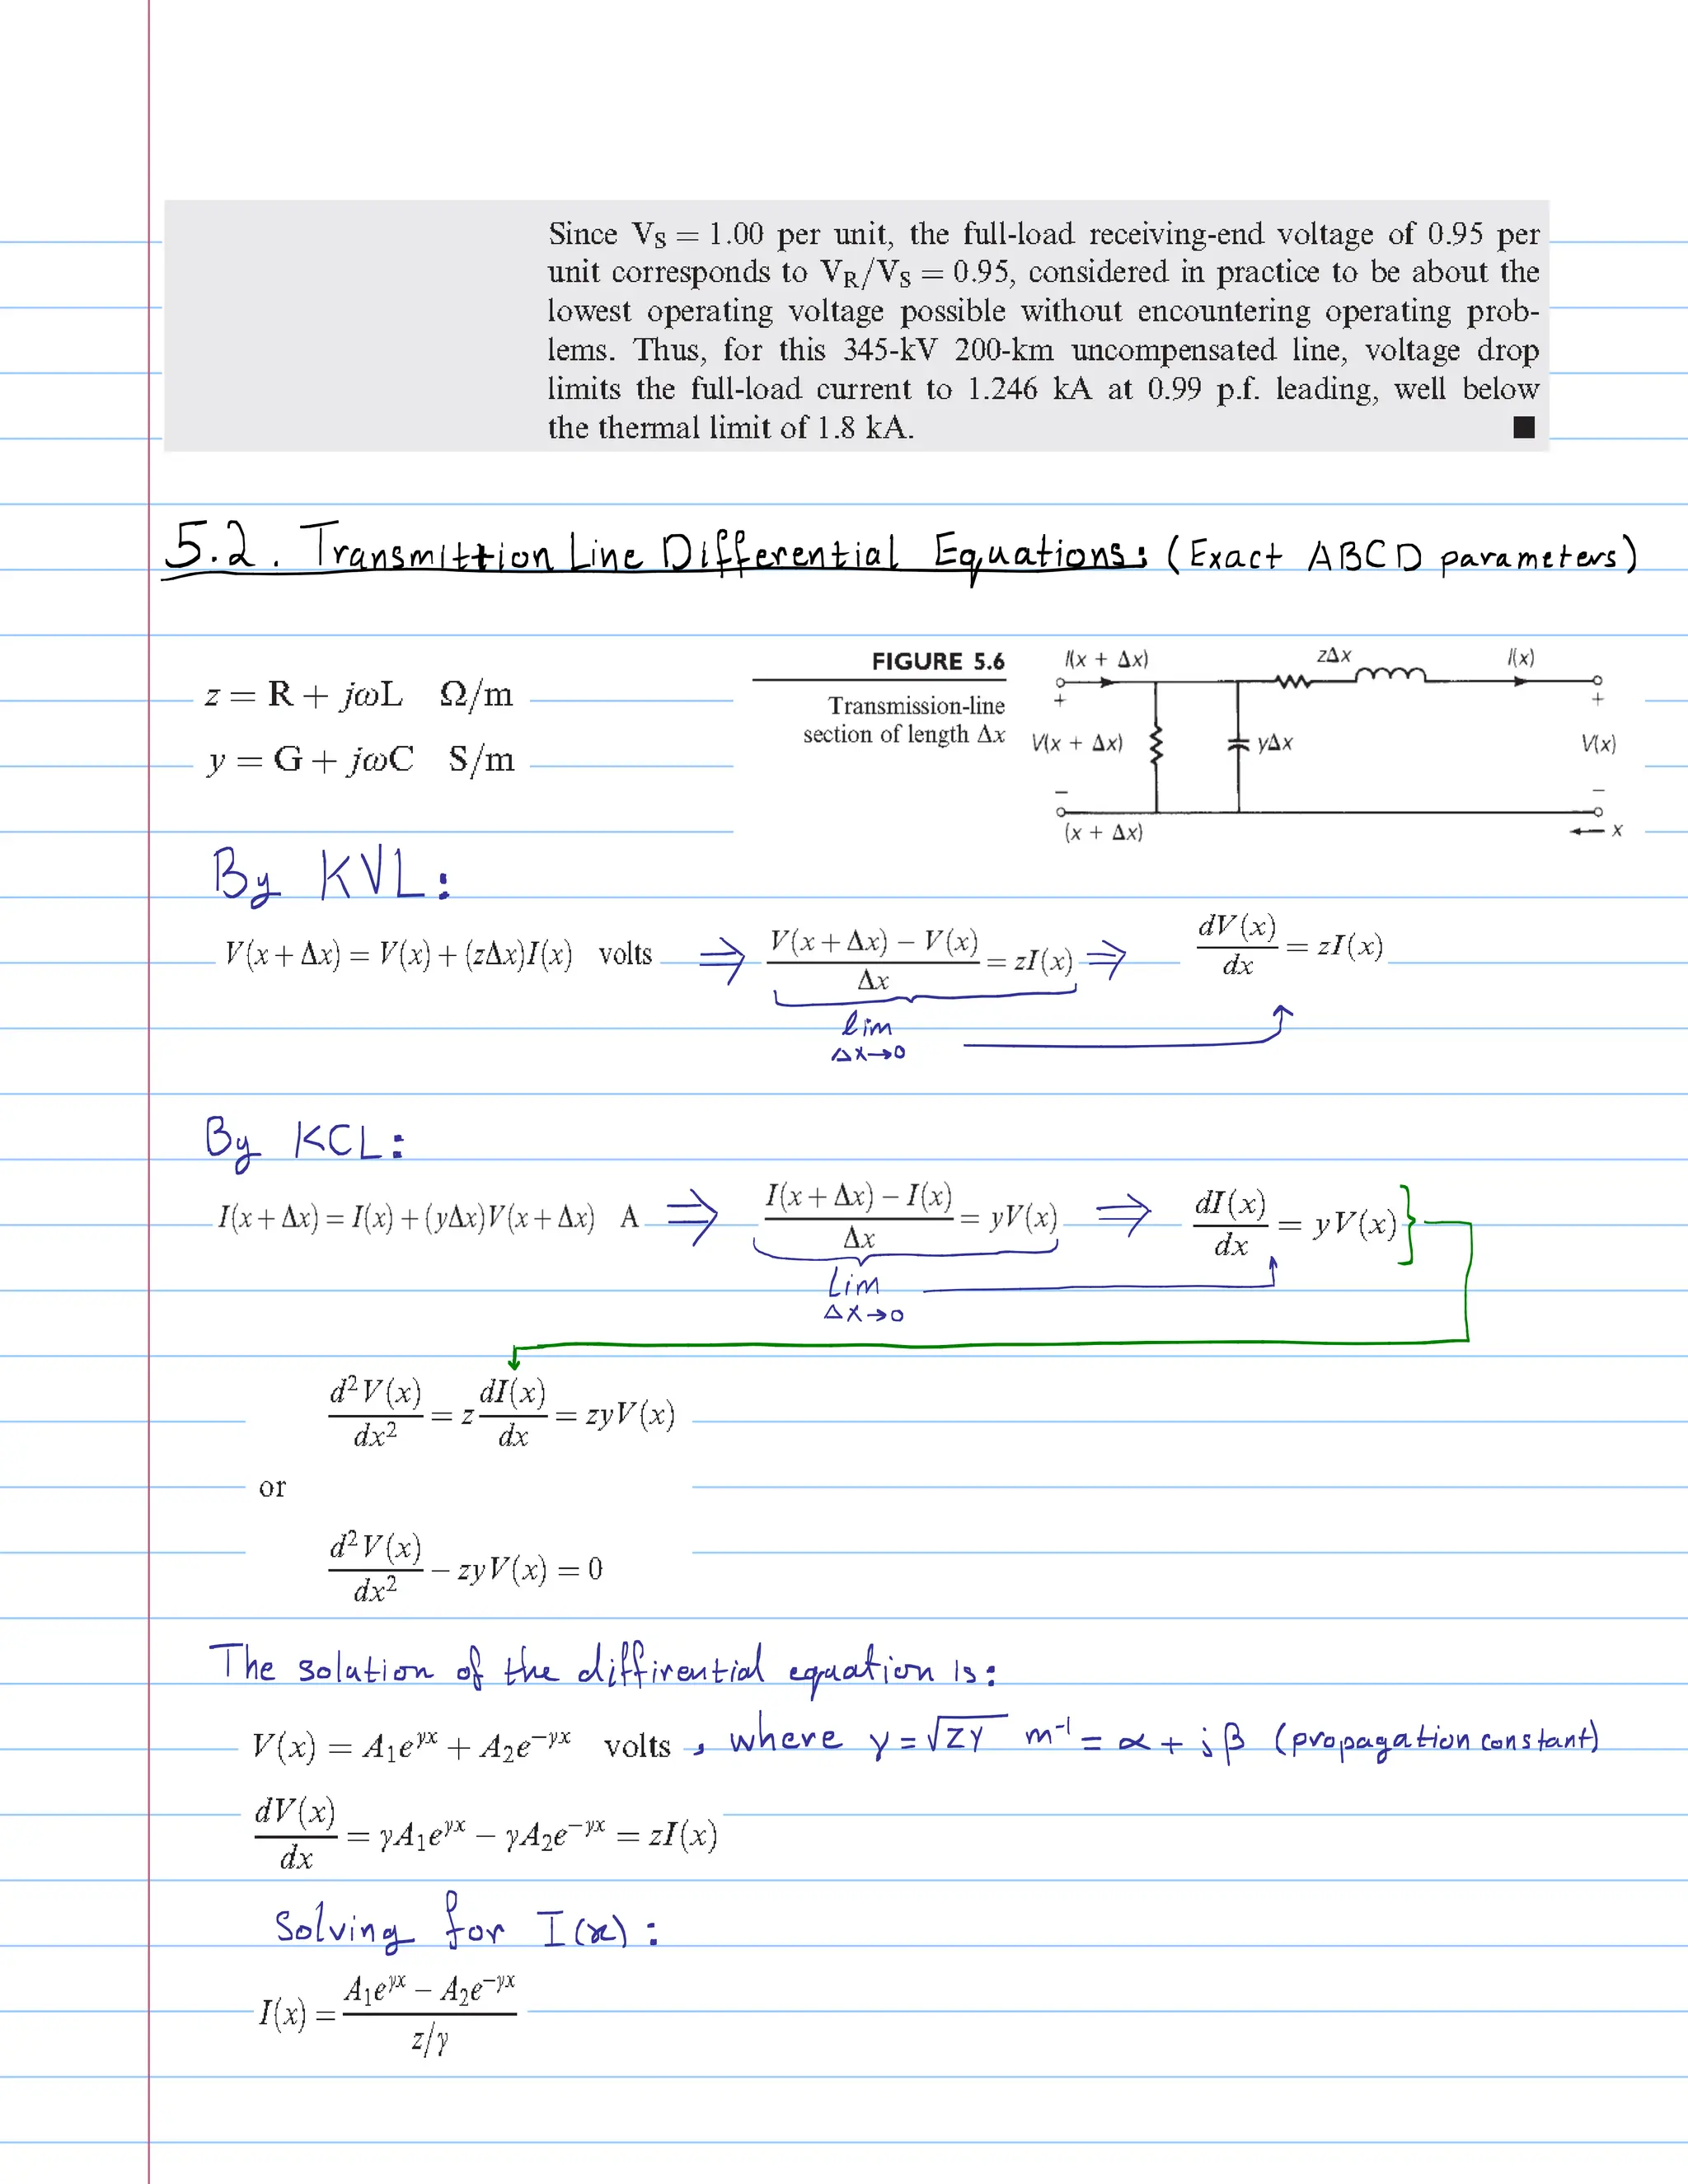 Since VS = 1.00 per unit, the full-load receiving-end voltage of 0.95 per
unit corresponds to VR/VS = 0.95, considered in practice to be about the
lowest operating voltage possible without encountering operating prob-
lems. Thus, for this 345-kV 200-km uncompensated line, voltage drop
limits the full-load current to 1.246 kA at 0.99 p.f. leading, well below
the thermal limit of 1.8 kA. ■
5.2. Transmittion Line Differential Equations: (Exact ABCD parameters)
z = R + jωL Ω/m
y = G + jωC S/m
FIGURE 5.6
Transmission-line
section of length Δx
I(x + Δx) zΔx I(x)
+ +
V(x + Δx) yΔx V(x)
− −
(x + Δx) ← x
By KVL:
V(x + Δx) = V(x) + (zΔx)I(x) volts ⇒ (V(x + Δx) − V(x))/Δx = zI(x) ⇒ dV(x)/dx = zI(x)
lim
Δx→0
By KCL:
I(x + Δx) = I(x) + (yΔx)V(x + Δx) A ⇒ (I(x + Δx) − I(x))/Δx = yV(x) ⇒ dI(x)/dx = yV(x)}
Lim
Δx→0
d²V(x)/dx² = z dI(x)/dx = zyV(x)
or
d²V(x)/dx² − zyV(x) = 0
The solution of the diffirential equation is:
V(x) = A₁e^γx + A₂e^−γx volts , where γ = √zy m⁻¹ = α + jβ (propagation constant)
dV(x)/dx = γA₁e^γx − γA₂e^−γx = zI(x)
Solving for I(x):
I(x) = (A₁e^γx − A₂e^−γx)/(z/γ)